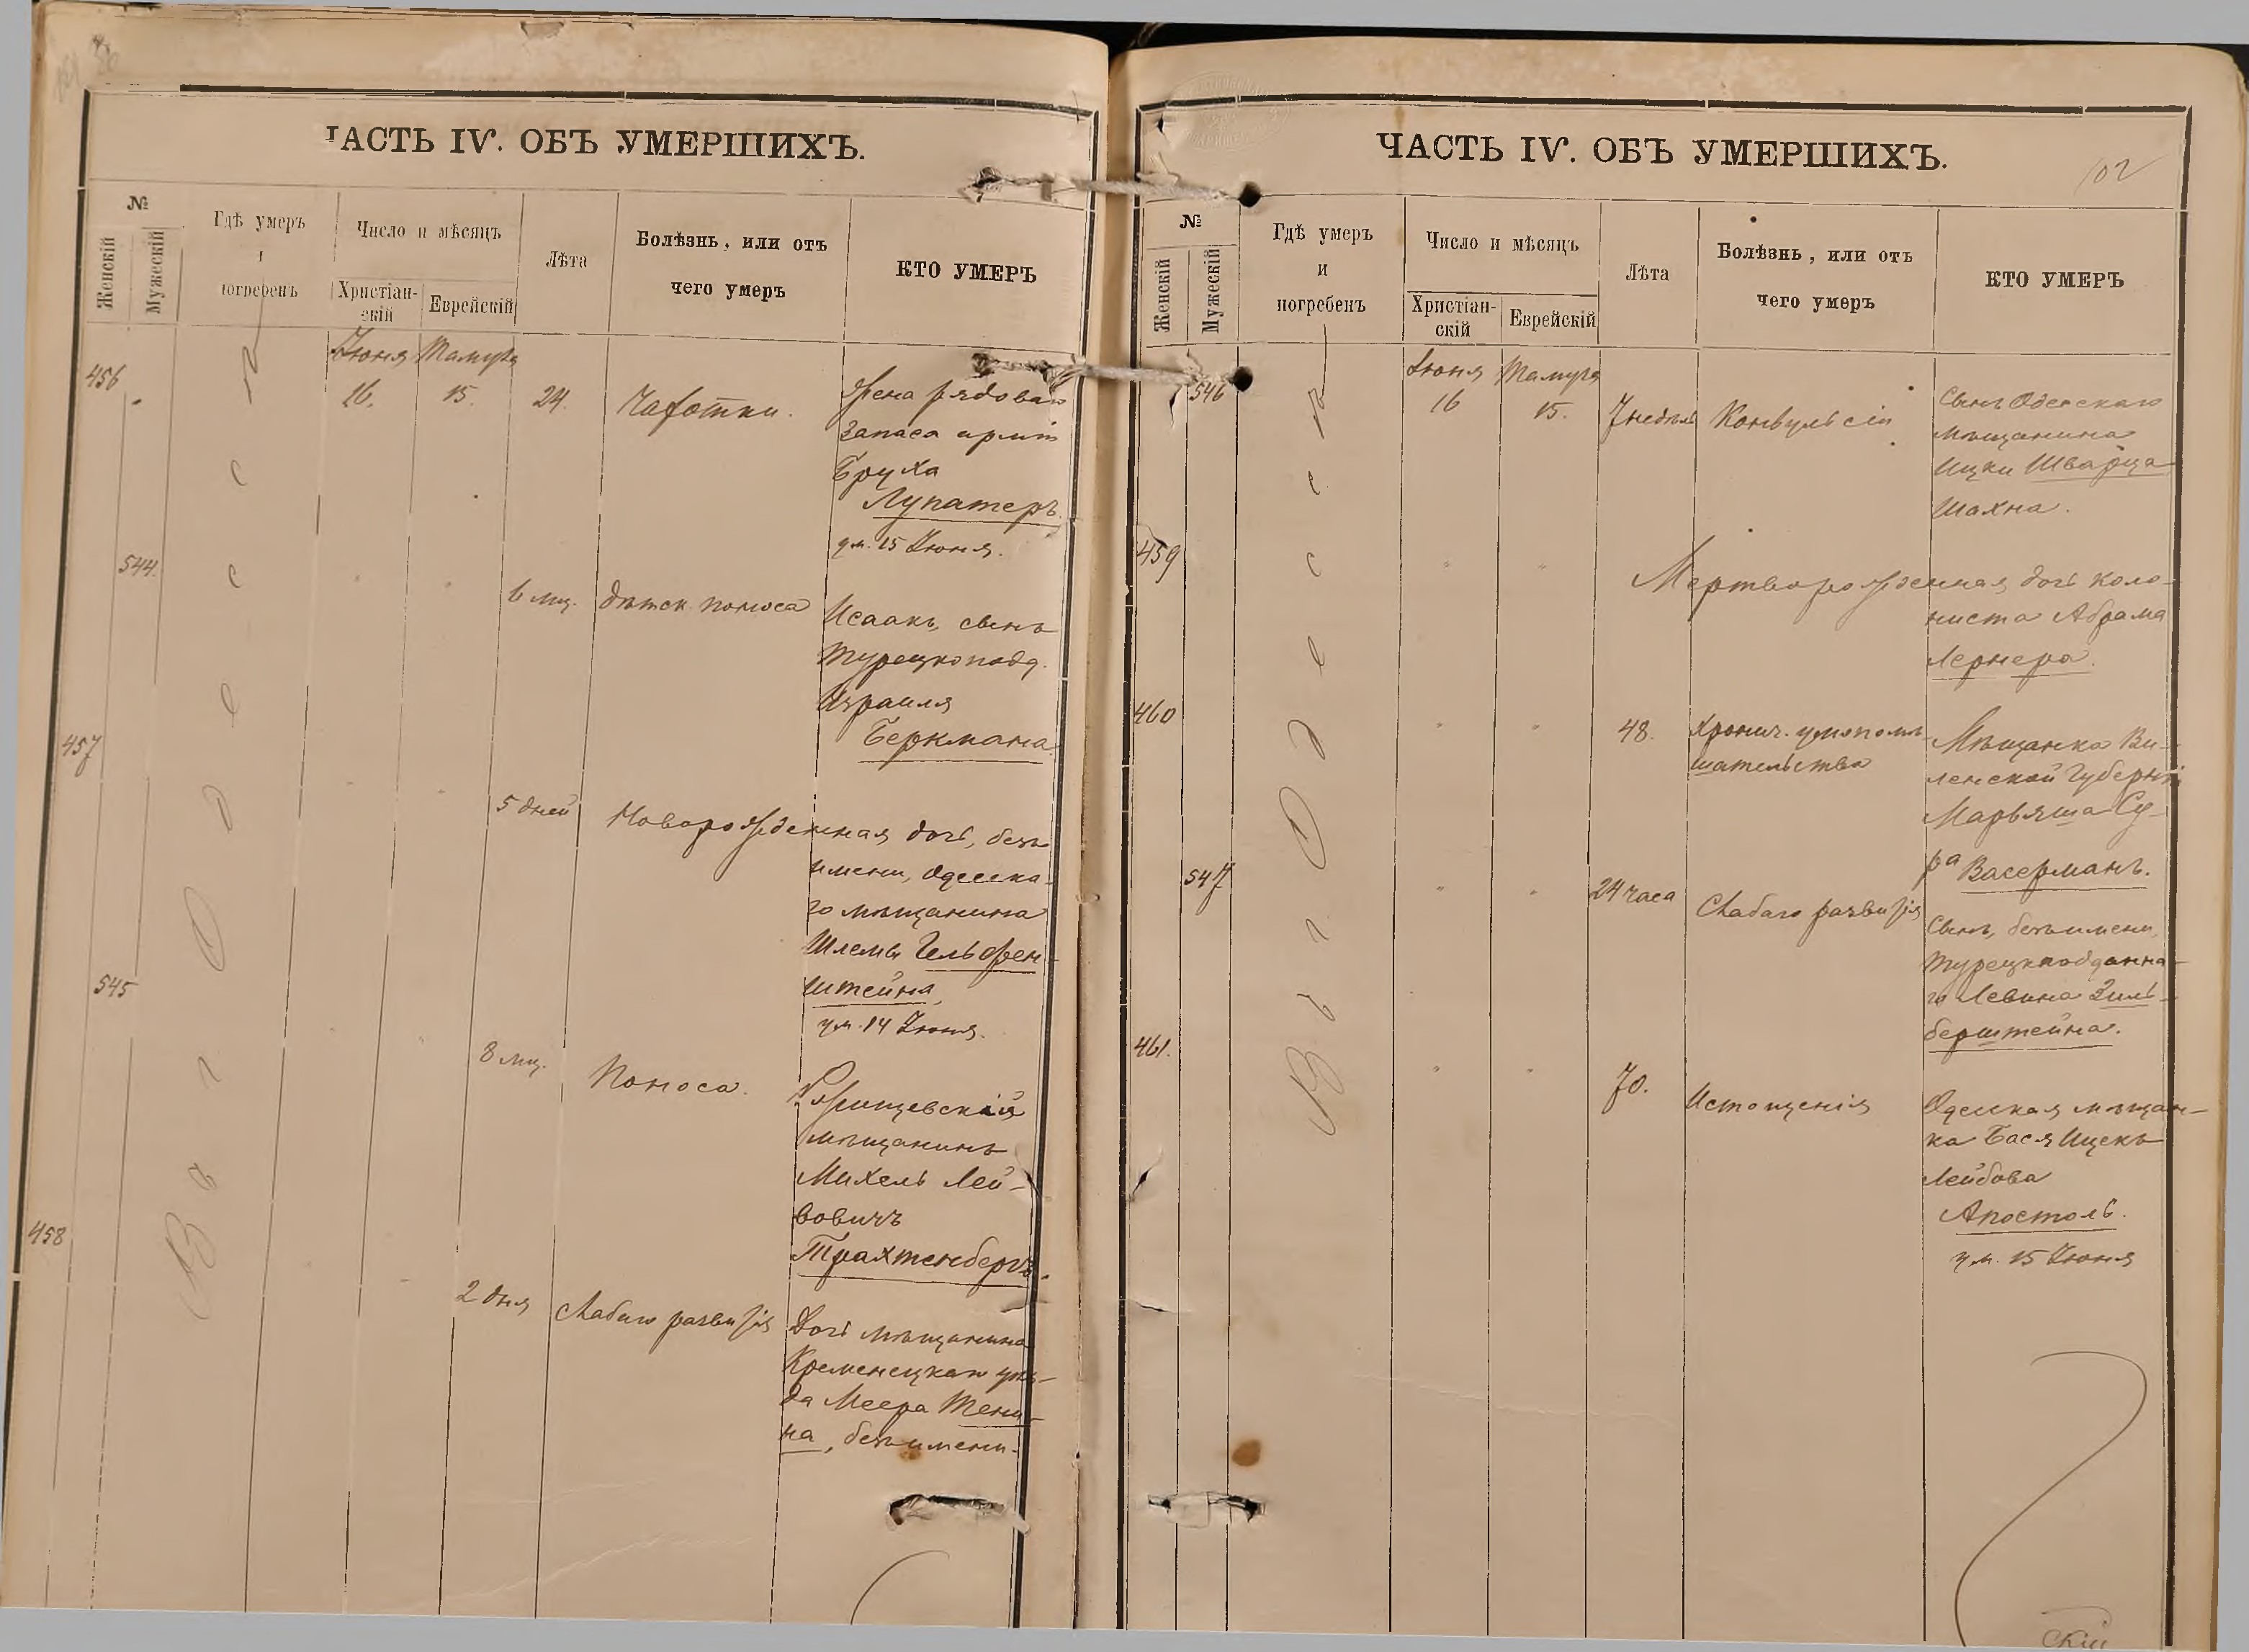 ЧАСТЬ IV. ОБЪ УМЕРШИХЪ.
№
Женскій
Мужескій
Гдѣ умеръ
и
погребенъ
Число и мѣсяцъ
Христіан-
скій
Еврейскій
Лѣта
Болѣзнь, или отъ
чего умеръ
КТО УМЕРЪ
Въ г. Одессѣ
Іюня Тамуза
456
16. 15. 24. Чахотки.
Жена рядоваго
запаса арміи
Бруха
Лупатеръ.
ум. 15 Іюня.
544.
6 мц. дѣтск. поноса
Исаакъ, сынъ
турецкоподд.
Израиля
Беркмана
457
5 дней
Новорожденная дочь, безъ
имени, Одесска-
го мѣщанина
Шлемы Гельфен-
штейна,
ум. 14 Іюня.
545
8 мц. Поноса.
мѣщанинъ
Михель Лей-
бовичъ
Трахтенбергъ.
458
2 дня слабаго развитія
Дочь мѣщанина
Кременецкаго уѣз-
да Меера Тени-
на, безъ имени.
ЧАСТЬ IV. ОБЪ УМЕРШИХЪ.
102
№
Женскій
Мужескій
Гдѣ умеръ
и
погребенъ
Число и мѣсяцъ
Христіан-
скій
Еврейскій
Лѣта
Болѣзнь, или отъ
чего умеръ
КТО УМЕРЪ
Въ г. Одессѣ
Іюня Тамуза
546
16 15. 7 недѣль Конвульсіи
Сынъ Одесскаго
мѣщанина
Ицки Шварца
Шахна.
459
Мертворожденная дочь коло-
ниста Абрама
Лернера.
460
48. Хронич. умопомѣ-
шательства
Мѣщанка Ви-
ленской Губерніи
Марьяша Су-
ра Васерманъ.
547
24 часа Слабаго развитія
Сынъ, безъ имени,
турецкподданна-
го Левина Зиль-
берштейна.
461.
70. Истощенія
Одесская мѣщан-
ка Бася Ицекъ
Лейбова
Апостоль.
ум. 15 Іюня
скій